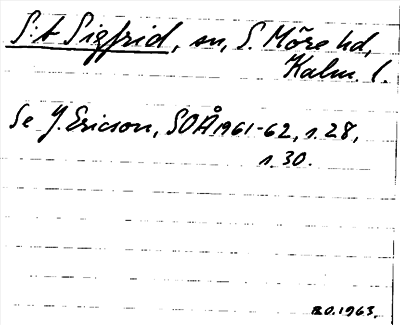 S:t Sigfrid, sn, S. Möre hd,
Kalm. l.
Se J. Ericson, SOÅ 1961-62, s. 28,
s. 30.
B.O. 1963.